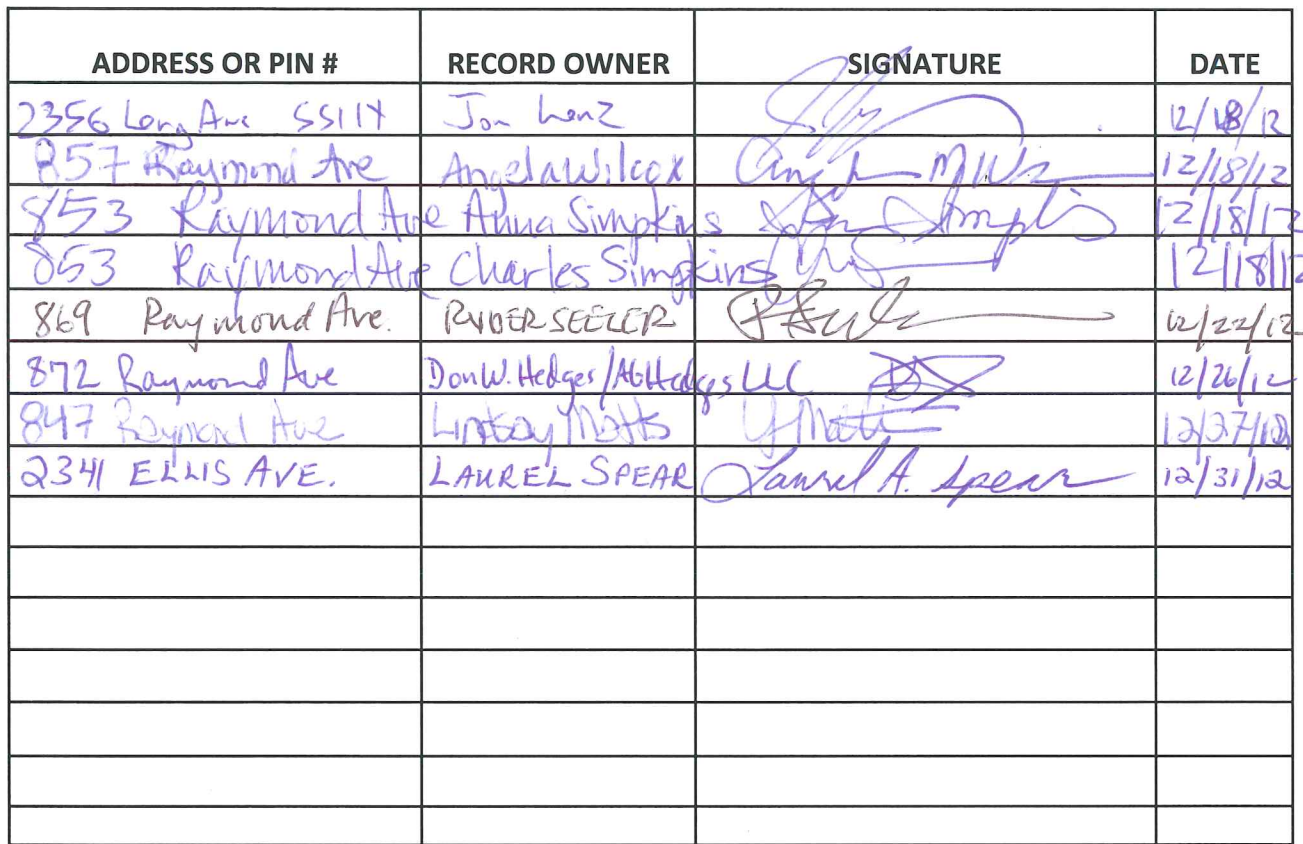 ADDRESS OR PIN # RECORD OWNER SIGNATURE DATE
2356 Long Ave 55114 Jon Lenz 12/18/12
857 Raymond Ave Angela Wilcox 12/18/12
853 Raymond Ave Anna Simpkins 12/18/12
853 Raymond Ave Charles Simpkins 12/18/12
869 Raymond Ave. RYDER SEELER 12/22/12
872 Raymond Ave Don W. Hedges/AbHedges LLC 12/26/12
847 Raymond Ave Lindsay Matts 12/27/12
2341 ELLIS AVE. LAUREL SPEAR Laurel A. Spear 12/31/12